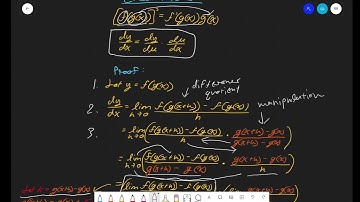 [f(g(x))]' = f'(g(x)) g'(x)
dy/dx = dy/du du/dx
Proof:
1. let y = f(g(x))
difference quotient
2. dy/dx = lim h→0 f(g(x+h)) - f(g(x)) / h
manipulation
3. = lim h→0 (f(g(x+h)) - f(g(x)) / h · g(x+h) - g(x) / g(x+h) - g(x))
= lim h→0 (f(g(x+h)) - f(g(x)) / g(x+h) - g(x) · g(x+h) - g(x) / h)
= lim f(g(x+h)) - f(g(x)) g(x+h) - g(x)
let k = g(x+h) - g(x)